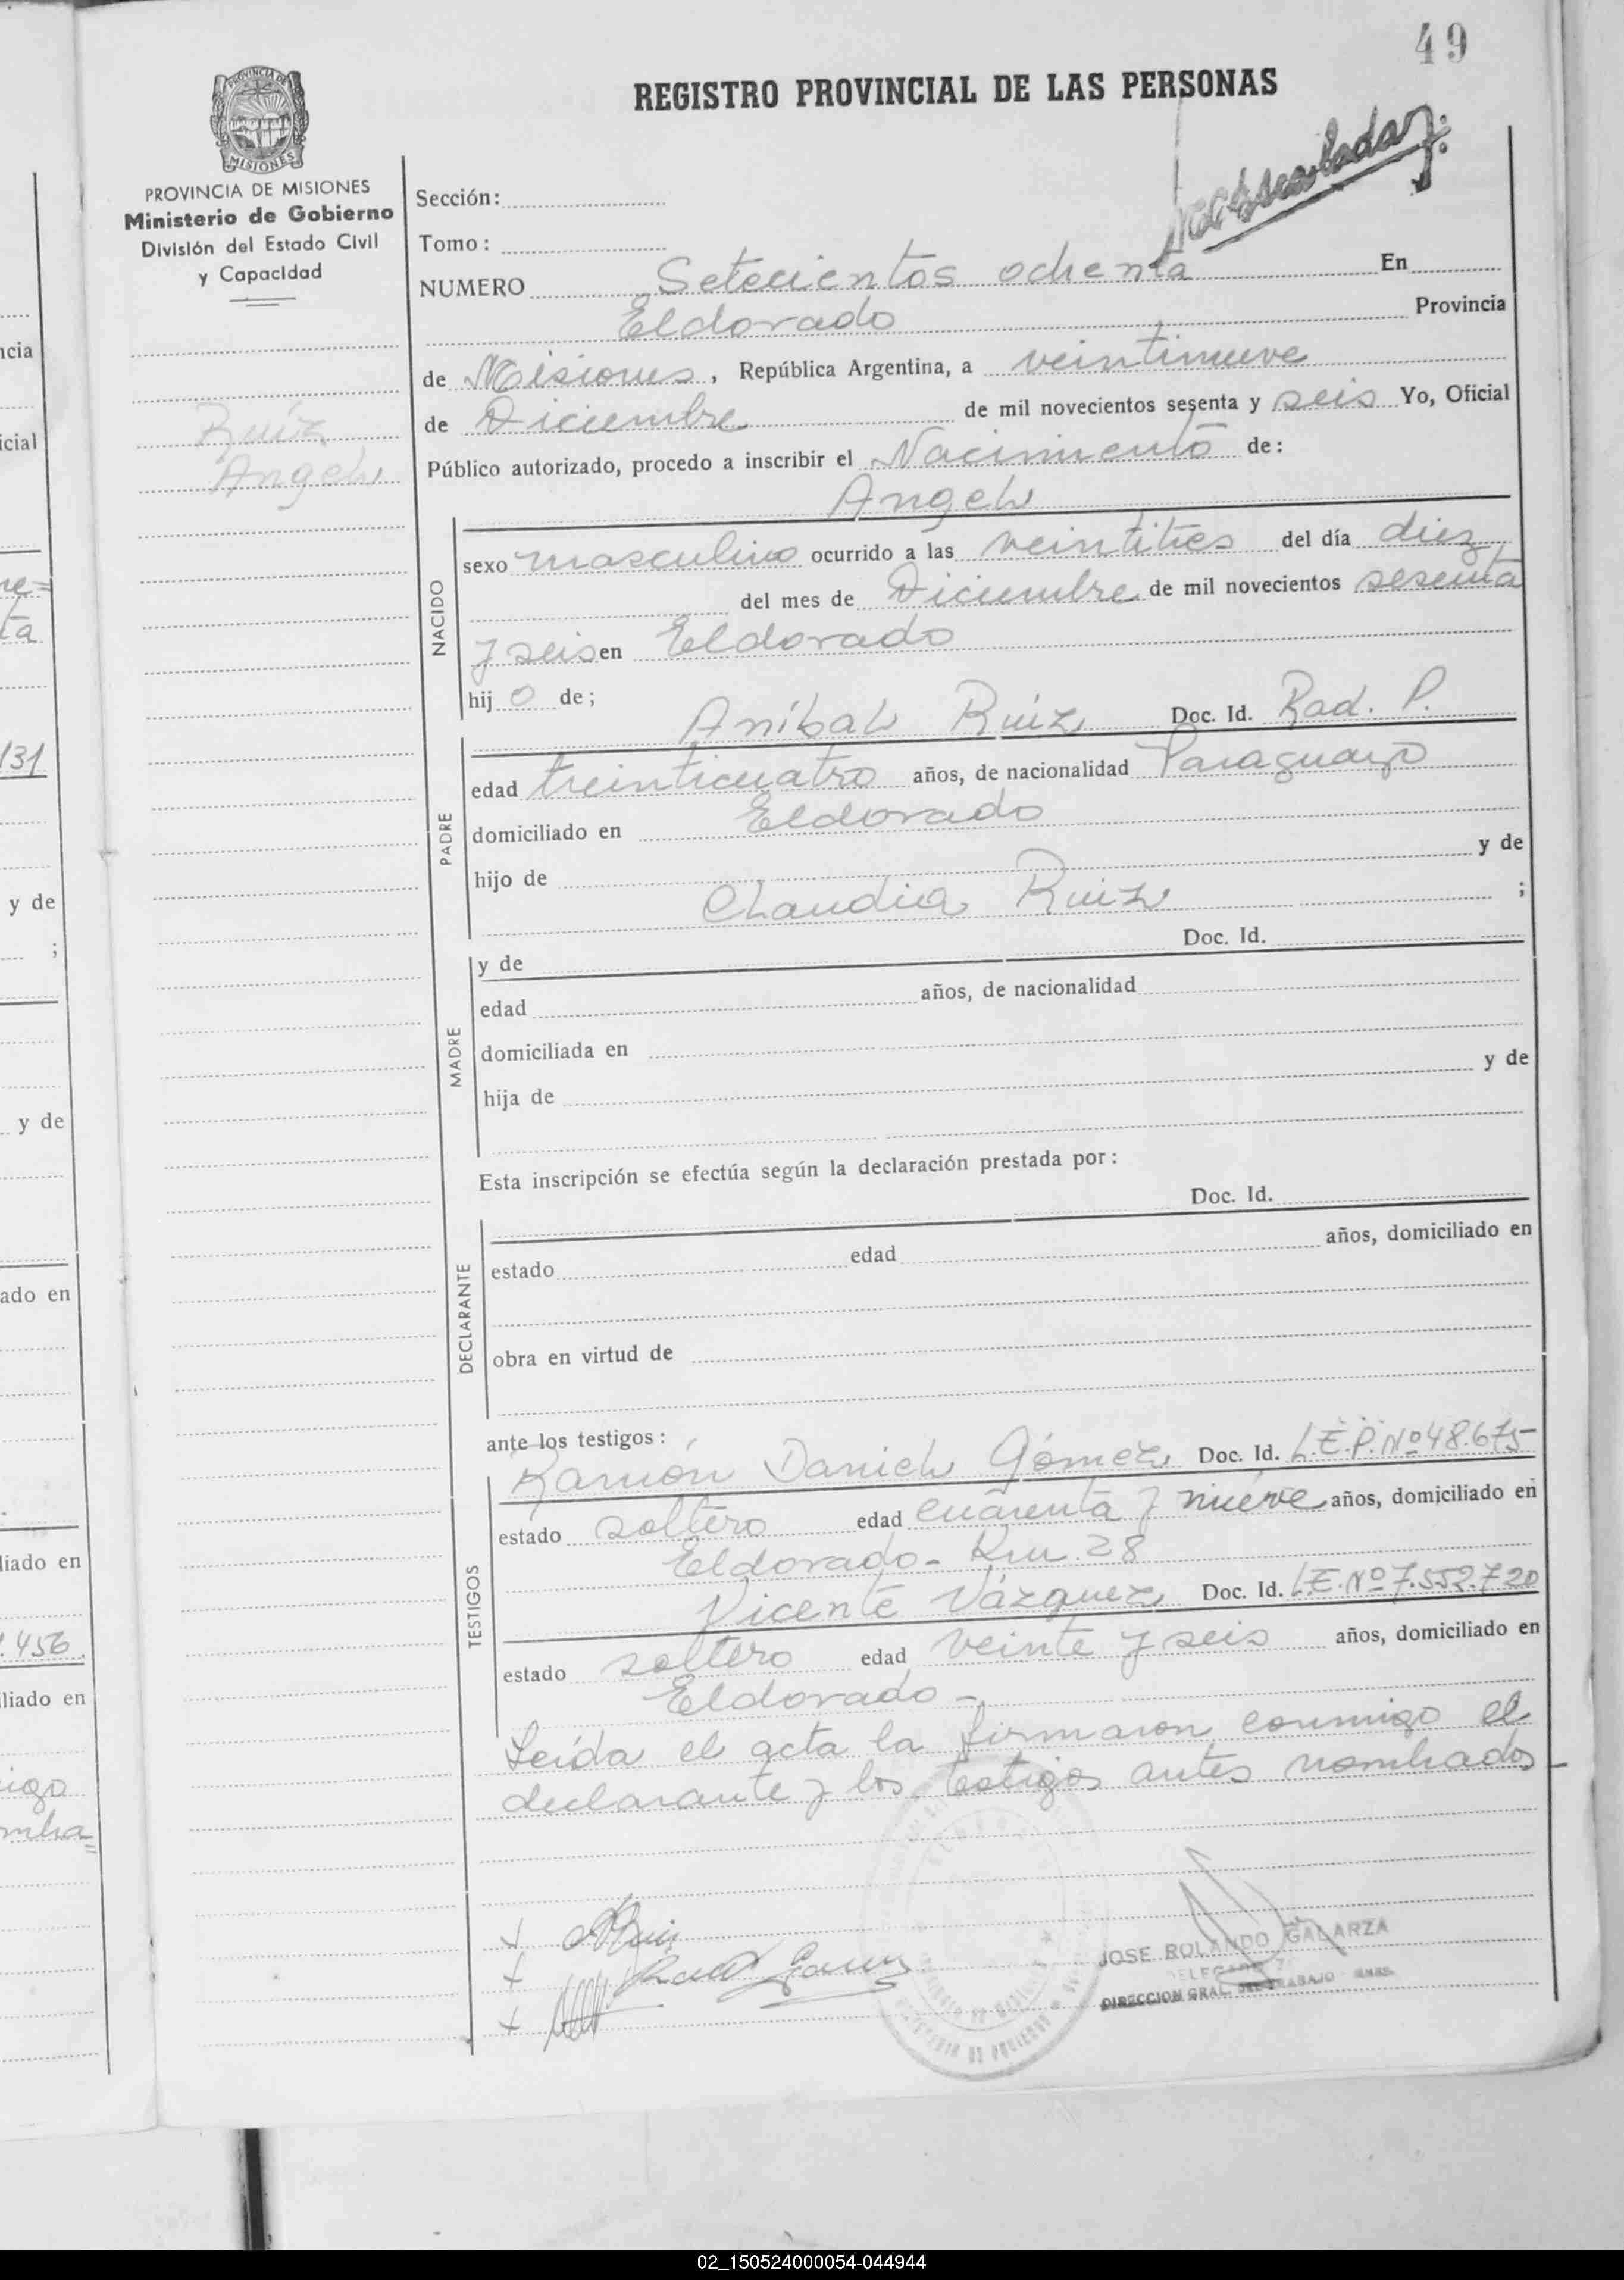 49
REGISTRO PROVINCIAL DE LAS PERSONAS
PROVINCIA DE MISIONES
MISIONES
PROVINCIA DE MISIONES
Ministerio de Gobierno
División del Estado Civil
y Capacidad
Ruíz
Angel
Sección:
Tomo:
NUMERO Setecientos ochenta En
Eldorado Provincia
de Misiones, República Argentina, a veintinueve
de Diciembre de mil novecientos sesenta y seis Yo, Oficial
Público autorizado, procedo a inscribir el Nacimiento de:
Angel
NACIDO
sexo masculino ocurrido a las veintitres del día diez
del mes de Diciembre de mil novecientos sesenta
y seis en Eldorado
hij o de;
Aníbal Ruíz Doc. Id. Rad. P.
PADRE
edad treinticuatro años, de nacionalidad Paraguayo
domiciliado en Eldorado
hijo de y de
Claudia Ruiz ;
MADRE
y de Doc. Id.
edad años, de nacionalidad
domiciliada en
hija de y de
Esta inscripción se efectúa según la declaración prestada por:
Doc. Id.
DECLARANTE
estado edad años, domiciliado en
obra en virtud de
ante los testigos:
Ramón Daniel Gómez Doc. Id. L.E.P. Nº 48.675
TESTIGOS
estado soltero edad cuarenta y nueve años, domiciliado en
Eldorado - Km. 28
Vicente Vázquez Doc. Id. L.E. Nº 7.552.720
estado soltero edad veinte y seis años, domiciliado en
Eldorado -
Leída el acta la firmaron conmigo el
declarante y los testigos antes nombrados
JOSE ROLANDO GALARZA
DIRECCION GRAL. DEL TRABAJO
ncia
icial
re=
ta
131
y de
;
y de
ado en
liado en
.456
liado en
igo
mbra=
02_150524000054-044944